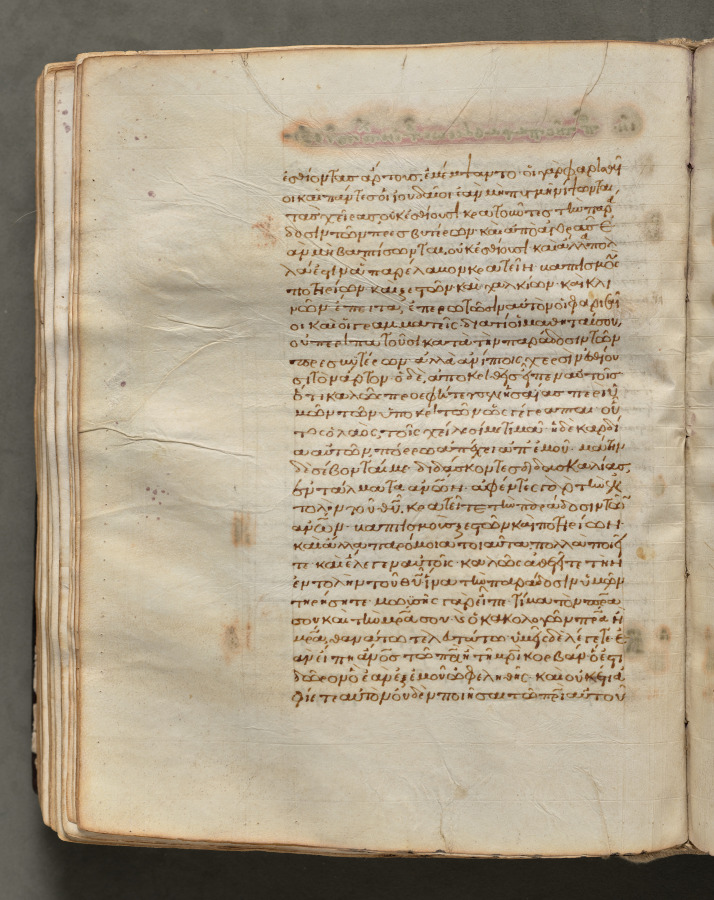 ἐσθίοντας ἄρτους, ἐμέμψαντο· οἱ γὰρ φαρισαῖ
οι καὶ πάντες οἱ ἰουδαῖοι ἐὰν μὴ πυγμῆ νίψωνται,
τὰς χεῖρας, οὐκ ἐσθίουσι κρατοῦντες τὴν παρά
δοσιν τῶν πρεσβυτέρων καὶ ἀπὸ ἀγορᾶς ἐ
ὰν μὴ βαπτίσωνται, οὐκ ἐσθίουσι καὶ ἄλλα πολ
λά ἐστιν ἃ παρέλαβον κρατεῖν· βαπτισμοὺς
ποτηρίων καὶ ξεστῶν καὶ χαλκίων· καὶ κλι
νῶν ἔπειτα, ἐπερωτῶσιν αὐτὸν οἱ φαρισαῖ
οι καὶ οἱ γραμματεῖς διατί οἱ μαθηταί σου,
οὐ περιπατοῦσι κατὰ τὴν παράδοσιν τῶν
πρεσβυτέρων ἀλλὰ ἀνίπτοις χερσὶν ἐσθίου
σι τὸν ἄρτον ὁ δὲ, ἀποκριθεὶς εἶπεν αὐτοῖς
ὅτι καλῶς προεφήτευσεν ἡσαΐας περὶ ὑ
μῶν τῶν ὑποκριτῶν ὡς γέγραπται· οὗ
τος ὁ λαὸς, τοῖς χείλεσί με τιμᾶ· ἡ δὲ καρδί
α αὐτῶν, πόρρω ἀπέχει ἀπ' ἐμοῦ· μάτην
δὲ σέβονταί με· διδάσκοντες διδασκαλίας,
ἐντάλματα ἀν̅ω̅ν· ἀφέντες γὰρ τὴν ἐν
τολὴν τοῦ θ̅υ̅, κρατεῖτε τὴν παράδοσιν τῶν
ἀν̅ω̅ν· βαπτισμοὺς ξεστῶν καὶ ποτηρίων·
καὶ ἄλλα παρόμοια τοιαῦτα πολλὰ ποιεῖ
τε καὶ ἔλεγεν αὐτοῖς· καλῶς ἀθετεῖτε τὴν
ἐντολὴν τοῦ θ̅υ̅ ἵνα τὴν παράδοσιν ὑμῶν
τηρήσητε μωϋσῆς γὰρ εἶπε τίμα τὸν π̅ρ̅α
σου καὶ τὴν μ̅ρ̅α σου· καὶ ὁ κακολογῶν π̅ρ̅α ἢ
μ̅ρ̅α, θανάτω τελευτάτω· ὑμεῖς δὲ λέγετε ἐ
ὰν εἴπη ἀν̅ο̅ς τῶ π̅ρ̅ι ἢ τῆ μ̅ρ̅ι κορβὰν ὅ ἐστι
δῶρον ὃ ἐὰν ἐξ ἐμοῦ ὠφεληθῆς· καὶ οὐκέτι ἀ
φίετε αὐτὸν οὐδὲν ποιῆσαι τῶ π̅ρ̅ι αὐτοῦ